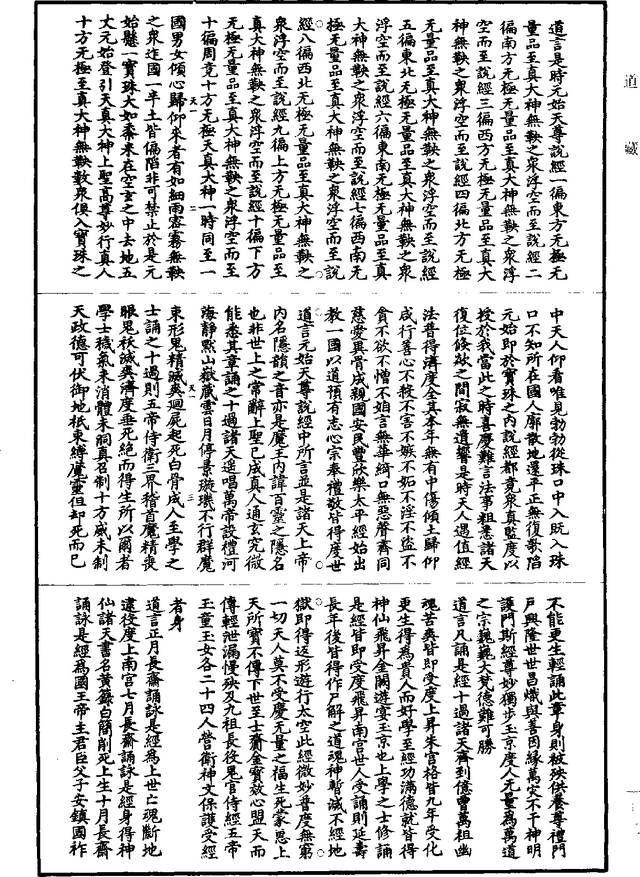 道藏
道言是時元始天尊說經一徧東方无極无
量品至真大神無鞅之衆浮空而至說經二
徧南方无極无量品至真大神無鞅之衆浮
空而至說經三徧西方无極无量品至真大
神無鞅之衆浮空而至說經四徧北方无極
无量品至真大神無鞅之衆浮空而至說經
五徧東北无極无量品至真大神無鞅之衆
浮空而至說經六徧東南无極无量品至真
大神無鞅之衆浮空而至說經七徧西南无
極无量品至真大神無鞅之衆浮空而至說
經八徧西北无極无量品至真大神無鞅之
衆浮空而至說經九徧上方无極无量品至
真大神無鞅之衆浮空而至說經十徧下方
无極无量品至真大神無鞅之衆浮空而至
十徧周竟十方无極天真大神一時同至一
國男女傾心歸仰來者有如細雨密霧無鞅
之衆迮國一半土皆偏陷非可禁止於是元
始懸一寶珠大如黍米在空玄之中去地五
丈元始登引天真大神上聖高尊妙行真人
十方无極至真大神無鞅數衆俱入寶珠之
中天人仰看唯見勃勃從珠口中入既入珠
口不知所在國人廓散地還平正無復欹陷
元始即於寶珠之內說經都竟衆真監度以
授於我當此之時喜慶難言法事粗悉諸天
復位倏欻之間寂無遺響是時天人遇值經
法普得濟度全其本年無有中傷傾土歸仰
咸行善心不殺不害不嫉不妬不淫不盜不
貪不欲不憎不㛿言無華綺口無惡聲齊同
慈愛異骨成親國安民豐欣樂太平經始出
教一國以道預有至心宗奉禮敬皆得度世
道言元始天尊說經中所言並是諸天上帝
內名隱韻之音亦是魔王內諱百靈之隱名
也非世上之常辭上聖已成真人通玄究微
能悉其章誦之十過諸天遥唱萬帝設禮河
海靜默山嶽藏雲日月停景璇璣不行群魔
束形鬼精滅爽迴屍起死白骨成人至學之
士誦之十過則五帝侍衛三界稽首魔精喪
眼鬼祅滅爽濟度垂死絶而得生所以爾者
學士穢氣未消體未洞真召制十方威未制
天政德可伏御地祇束縛魔靈但却死而已
不能更生輕誦此章身則被殃供養尊禮門
戶興隆世世昌熾與善因緣萬灾不干神明
護門斯經尊妙獨步玉京度人无量爲萬道
之宗巍巍大梵德難可勝
道言凡誦是經十過諸天齊到億曾萬祖幽
魂苦爽皆即受度上昇朱宮格皆九年受化
更生得爲貴人而好學至經功滿德就皆得
神仙飛昇金闕遊宴玉京也上學之士修誦
是經皆即受度飛昇南宮世人受誦則延壽
長年後皆得作尸解之道魂神暫滅不經地
獄即得返形遊行太空此經微妙普度無窮
一切天人莫不受慶无量之福生死蒙恩上
天所寶不傳下世至士賫金寶效心盟天而
傳輕泄漏慢殃及九祖長役鬼官侍經五帝
玉童玉女各二十四人營衛神文保護受經
者身
道言正月長齋誦詠是經爲上世亡魂斷地
逮役度上南宮七月長齋誦詠是經身得神
仙諸天書名黄籙白簡削死上生十月長齋
誦詠是經爲國王帝主君臣父子安鎮國祚